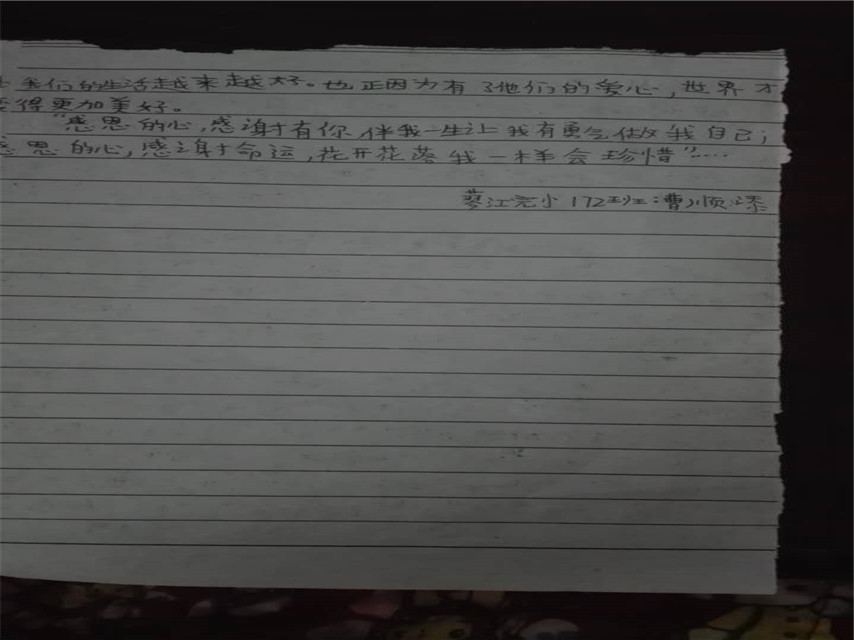 我们的生活越来越好。也正因为有了他们的爱心，世界才
变得更加美好。
“感恩的心，感谢有你，伴我一生让我有勇气做我自己；
感恩的心，感谢命运，花开花落我一样会珍惜”……
蓼江完小172班：曹顺添